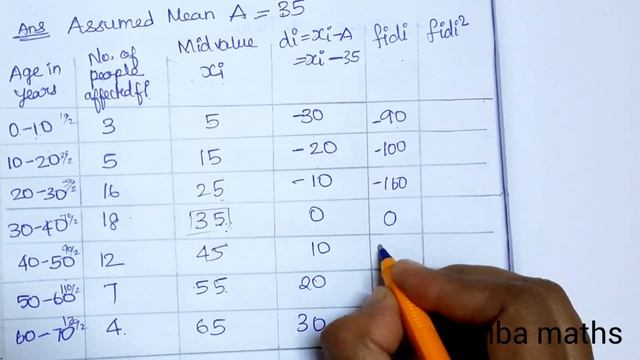 Ans Assumed Mean A = 35
Age in years No. of people affected fi Midvalue xi di = xi - A = xi - 35 fidi fidi²
0-10 10/2 3 5 -30 -90
10-20 5 15 -20 -100
20-30 16 25 -10 -160
30-40 18 35 0 0
40-50 90/2 12 45 10
50-60 110/2 7 55 20
60-70 4 65 30
maths